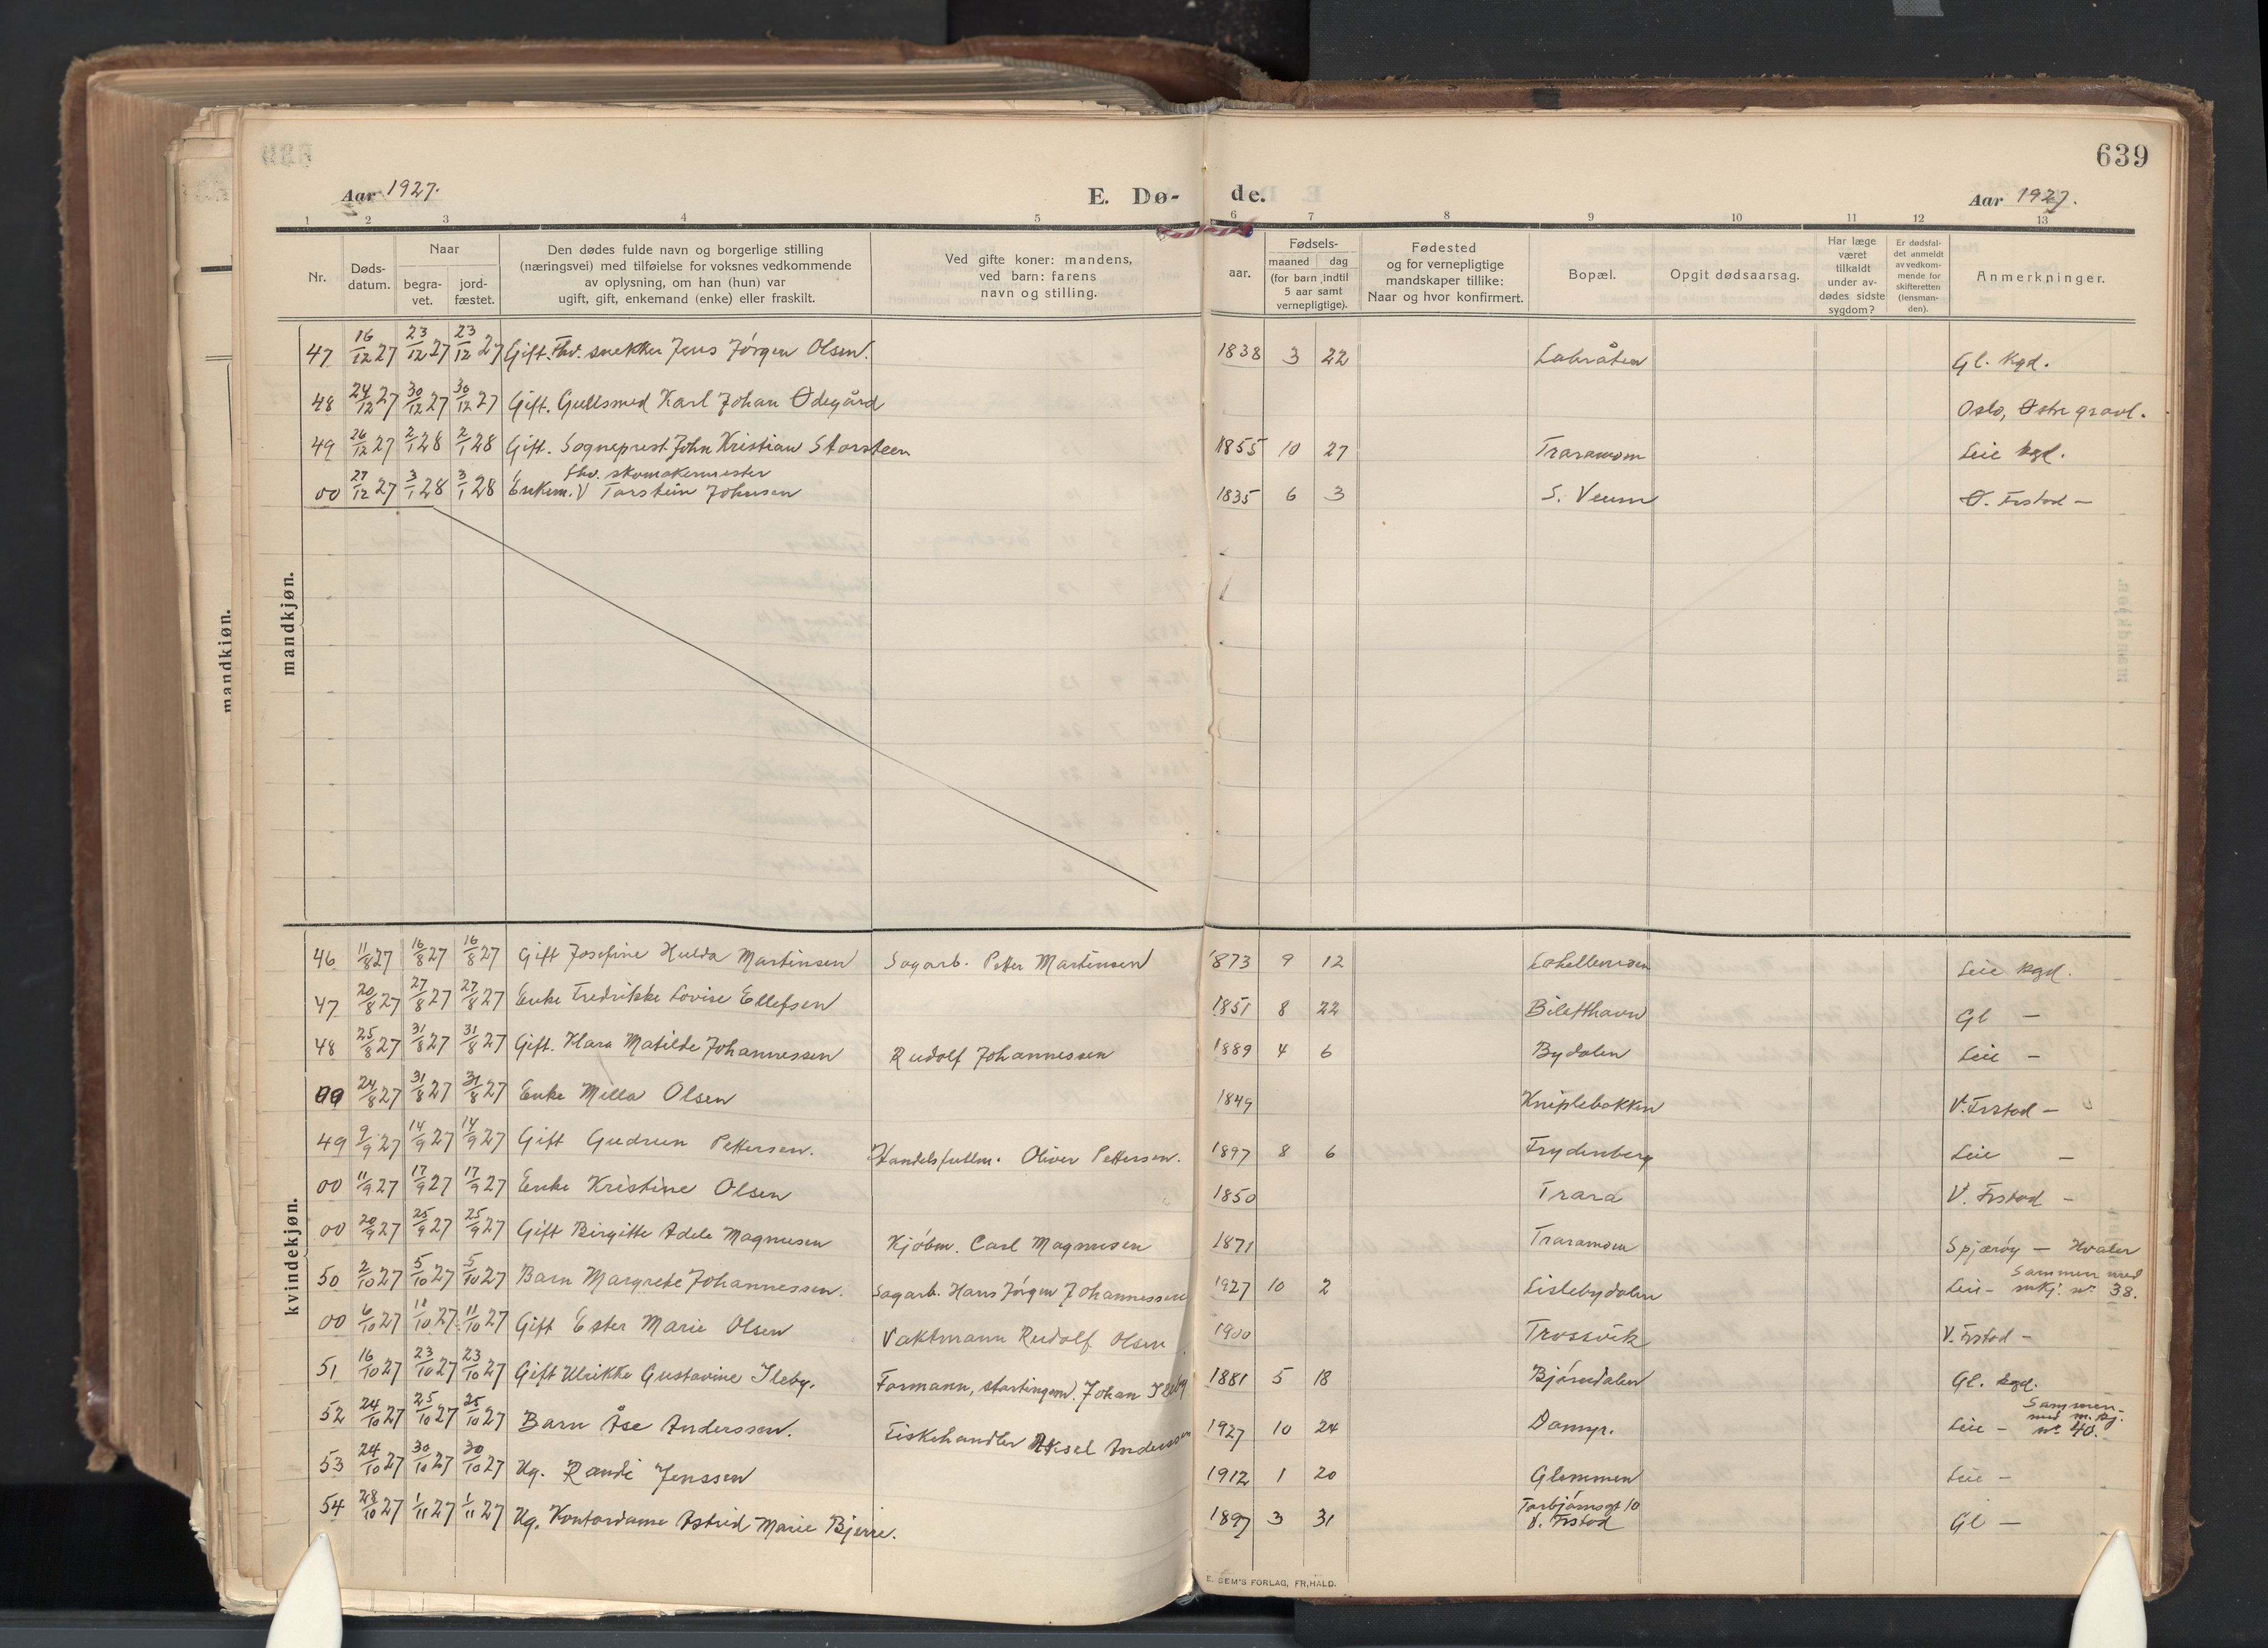 639
Aar 1927.
E. Dø- de.
Aar 1927.
1 2 3 4 5 6 7 8 9 10 11 12 13
Nr.
Døds-
datum.
Naar
begra-
vet.
jord-
fæstet.
Den dødes fulde navn og borgerlige stilling
(næringsvei) med tilføielse for voksnes vedkommende
av oplysning, om han (hun) var
ugift, gift, enkemand (enke) eller fraskilt.
Ved gifte koner: mandens,
ved barn: farens
navn og stilling.
aar.
Fødsels-
maaned dag
(for barn indtil
5 aar samt
vernepligtige).
Fødested
og for vernepligtige
mandskaper tillike:
Naar og hvor konfirmert.
Bopæl.
Opgit dødsaarsag.
Har læge
været
tilkaldt
under av-
dødes sidste
sygdom?
Er dødsfal-
det anmeldt
av vedkom-
mende for
skifteretten
(lensman-
den).
Anmerkninger.
mandkjøn.
mandkjøn.
47 16/12 27 23/12 27 23/12 27 Gift. Fhv. snekker Jens Jørgen Olsen. 1838 3 22 Labråten Gl. kgd.
48 24/12 27 30/12 27 30/12 27 Gift. Gullsmed Karl Johan Ødegård Oslo, Østre gravl.
49 26/12 27 2/1 28 2/1 28 Gift. Sogneprest John Kristian Storsteen 1855 10 27 Traramoen Leie kgd.
fhv. skomakermester
00 27/12 27 3/1 28 3/1 28 Enkem. V Torstein Johnsen 1835 6 3 S. Veum Ø. Frstad —
kvindekjøn.
46 11/8 27 16/8 27 16/8 27 Gift Josefine Hulda Martinsen Sagarb. Petter Martinsen 1873 9 12 Lahellemoen Leie kgd.
47 20/8 27 27/8 27 27/8 27 Enke Fredrikke Lovise Ellefsen 1851 8 22 Biletthavn Gl —
48 25/8 27 31/8 27 31/8 27 Gift. Klara Matilde Johannessen Rudolf Johannessen 1889 4 6 Bydalen Leie —
00 24/8 27 31/8 27 31/8 27 Enke Milla Olsen 1849 Kniplebakken V. Frstad —
49 9/9 27 14/9 27 14/9 27 Gift Gudrun Pettersen. Handelsfullm. Oliver Pettersen. 1897 8 6 Frydenberg Leie —
00 11/9 27 17/9 27 17/9 27 Enke Kristine Olsen 1850 Trara V. Frstad —
00 20/9 27 25/9 27 25/9 27 Gift Birgitte Adele Magnusen Kjøbm. Carl Magnusen 1871 Traramoen Spjærøy — Hvaler
50 2/10 27 5/10 27 5/10 27 Barn Margrete Johannessen. Sagarb. Hans Jørgen Johannessen 1927 10 2 Lislebydalen Leie — Sammen med
mkj. nr 38.
00 6/10 27 11/10 27 11/10 27 Gift Ester Marie Olsen Vaktmann Rudolf Olsen 1900 Trossvik V. Frstad —
51 16/10 27 23/10 27 23/10 27 Gift Ulrikke Gustavine Ileby. Formann, stortingsm. Johan Ileby 1881 5 18 Bjørndalen Gl. kgd.
52 24/10 27 25/10 27 25/10 27 Barn Åse Anderssen. Fiskehandler Aksel Anderssen 1927 10 24 Dammyr. Leie — Sammen
med m.kj.
nr 40.
53 24/10 27 30/10 27 30/10 27 Ug. Randi Jenssen 1912 1 20 Glemmen Leie —
54 28/10 27 1/11 27 1/11 27 Ug. Kontordame Astrid Marie Bjerre. 1897 3 31 Torbjørnsgt 10
V. Frstad Gl —
E. SEM'S FORLAG, FR.HALD.